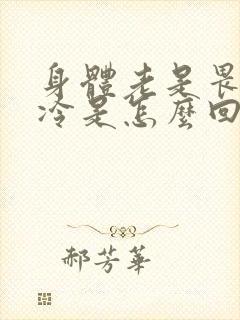 身體老是畏
冷是怎麼回
郝芳華